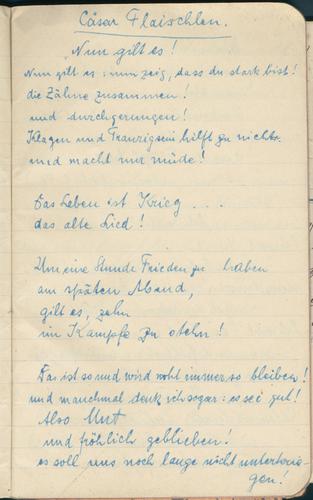 Cäsar Flaischlen.
Nun gilt es!
Nun gilt es: nun zeig, dass du stark bist!
die Zähne zusammen!
und durchgerungen!
Klagen und Traurigsein hilft zu nichts
und macht nur müde!
Das Leben ist Krieg ...
das alte Lied!
Um eine Stunde Frieden zu haben
am späten Abend,
gilt es, zehn
im Kampfe zu stehn!
Das ist so und wird wohl immer so bleiben!
und manchmal denk ich sogar: es sei gut!
Also Mut
und fröhlich geblieben!
es soll uns noch lange nicht unterkrie-
gen!